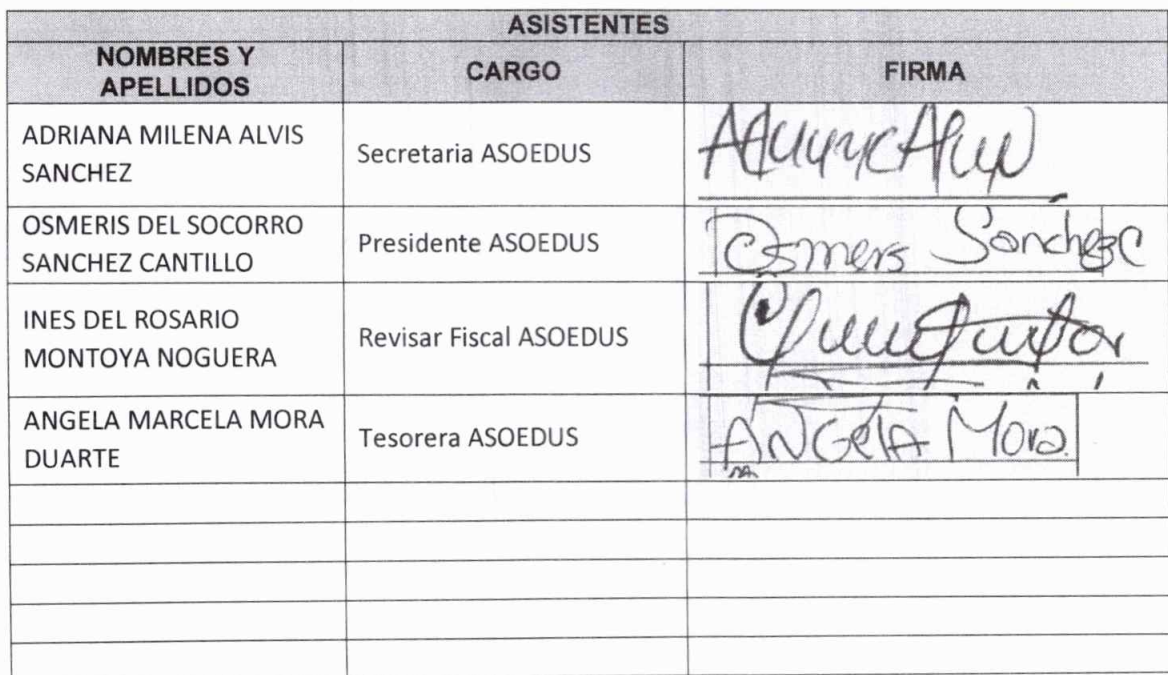 ASISTENTES
NOMBRES Y APELLIDOS CARGO FIRMA
ADRIANA MILENA ALVIS
SANCHEZ
Secretaria ASOEDUS
OSMERIS DEL SOCORRO
SANCHEZ CANTILLO
Presidente ASOEDUS
Osmeris Sanchez C
INES DEL ROSARIO
MONTOYA NOGUERA
Revisar Fiscal ASOEDUS
ANGELA MARCELA MORA
DUARTE
Tesorera ASOEDUS
ANGelA Mora